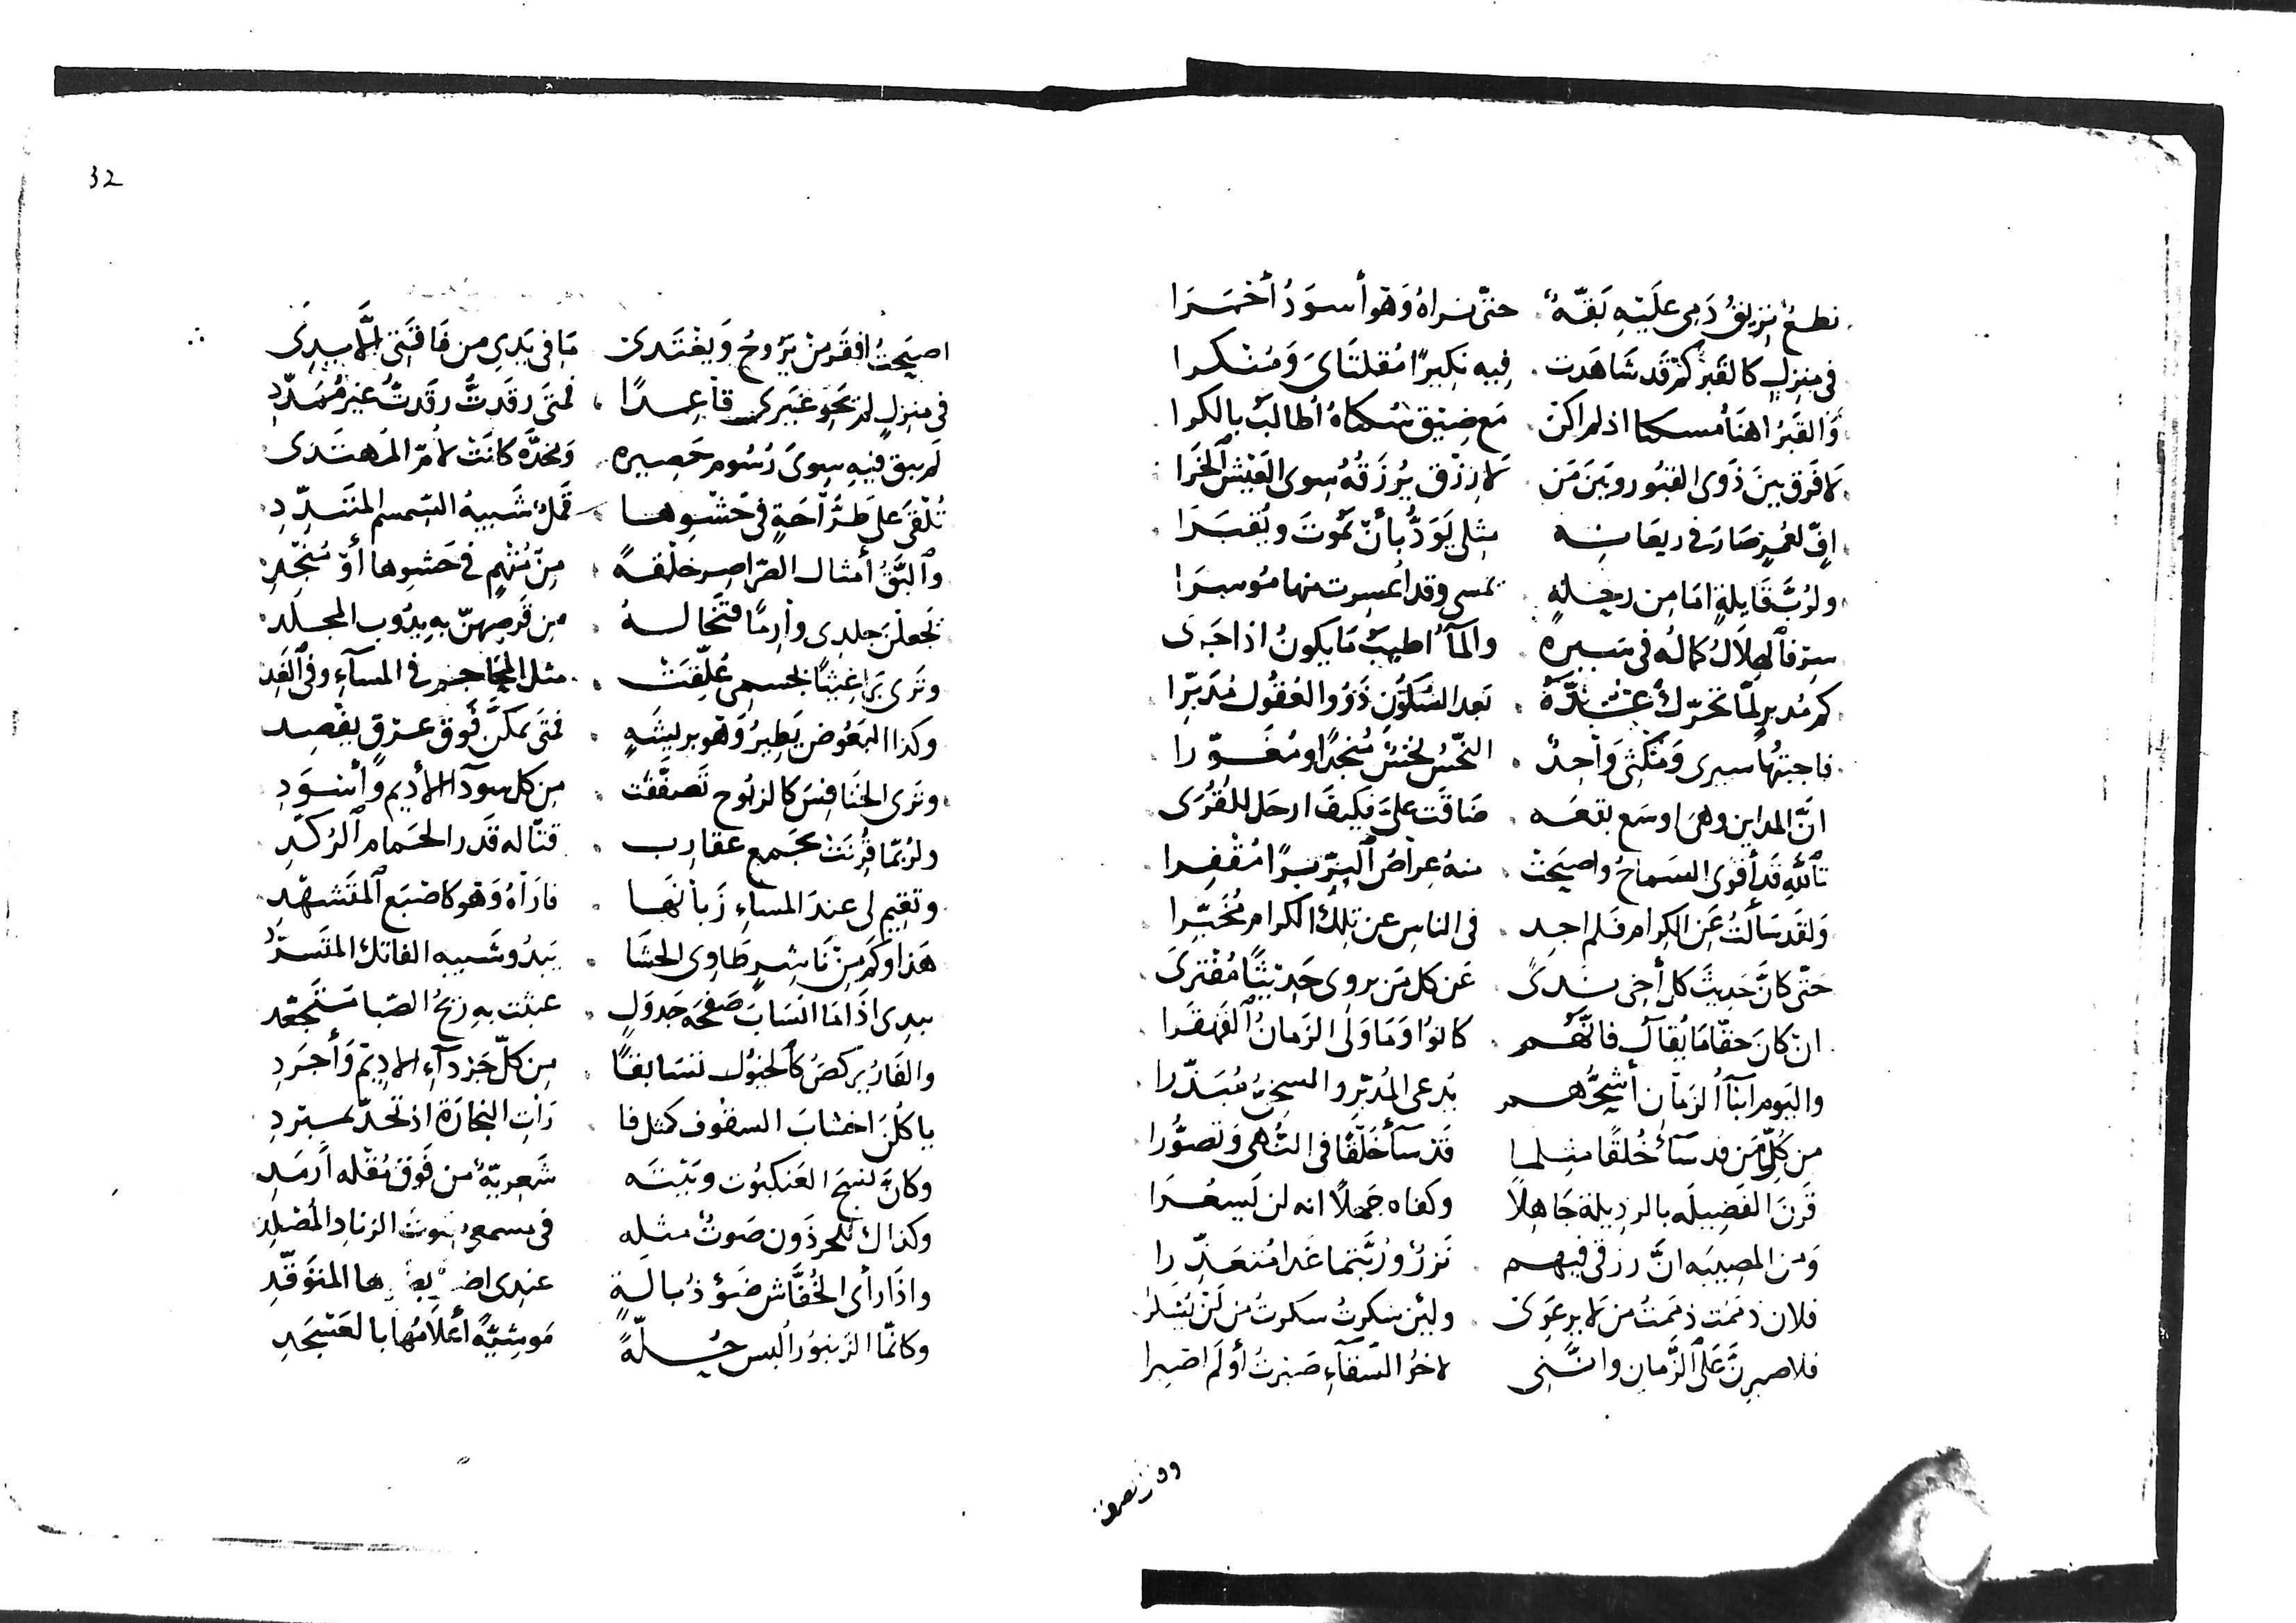 نطعٌ بزيق دَمى عليَه بَقّهُ حتىّ نراهُ وَهو أسوَدُ أحمَرَا
فى منزلٍ كالقَبر كم قَد شَاهَدت فيه نكيرًا مُقلتَاىَ وَمُنكرا
وَالقَبرُ اهنَأُ مسكنا اذ لم اكن مَع ضِيق سُكناهُ أطالَبُ بالكرا
لا فَرق بينَ ذَوى القبُور وبَين مَن لا رزق يُرزَقهُ سِوى العَيش الخَرا
افٍّ لعُمرٍ صَارَ فى ريعَانه مِثلى يَوَدُّ بأَن يَموُتَ ويُقبَرَا
ولرُبَّ قَايلةٍ امَا مِن رحلةٍ تمسى وقد اعسرت منها موُسرَا
سِر فالهِلَالُ كمالهُ فى سَيرهِ والمآءُ اطيبُ مَا يكونُ اذا جَرَى
كم مُدبرٍ لمّا تحَرّك عَدَّهُ بَعد السُكوُن ذَوُو العُقُول مُدَبِّرا
فاجبتُها سيرى وَمُكثى وَاحِدٌ النّحسُ نحسٌ مُنجدًا ومُغَوّرا
انَّ المداين وهى اوسَع بقعَه ضَاقت علىَّ فكيفَ ارحَل للقُرَى
تَاللهِ قَد أقوى السَماحُ واصبَحت منهُ عِراصُ البِرّ بَرًّا مُقفِرا
وَلقَد سَألتُ عَن الكِرام فَلم اجد فى الناسِ عن تلِكَ الكرام مُخَبِّرا
حَتى كانَّ حَديثَ كل أخى نَدىً عَن كل مَن يروى حَديثًا مُفترَى
ان كانَ حقّا مَا يُقالُ فانَّهُم كانوُا وَمَا وَلى الزمانُ القَهقَرا
واليَوم ابنَآءُ الزمَان أشَحُّهُم يُدعى المُدبّر والسخِىُّ مُبَذّرا
من كُلّ مَن قد سَآءَ خُلقًا مثلما قَد سَآءَ خَلقًا فى النُهى وَتَصوُّرا
قَرنَ الفَضيلَه بالرذيلة جَاهِلاً وكفاه جَهلاً انه لن يَشعُرَا
وَمن المصيبَه انَّ رزقى فيهم نَزرٌ ورُبَّتما غَدا مُتعَذّرا
فلان ذممَت ذممَتُ من لا يرعَوِى ولئِن شكرتُ شكرتُ من لَن يُشكرا
فلاصبرنَّ عَلى الزَّمان وانَّنى لاخوُ الشقآءِ صَبرتُ أو لَم اصبرا
32
اصبَحتُ افقَر مَن يَروُحُ وَيغتَدى مَا فى يَدِى من فَاقَتِى الَّا يدِى
فى منزلٍ لم يَحوِ غَيرى قاعدًا فمتَى رقَدتُ رقَدتُ غيرَ مُمَدّدِ
لم يبق فيهِ سِوىَ رُسُوم حَصِيره وَمخدَّه كانَت لأُمّ المُهتَدى
تُلقى عَلى طَرَّاحَةٍ فى حَشوِها قَملٌ شَبيهُ السّمسم المتَبدّدِ
وَالبَقُّ أمثال الصّراصر خلقهً مِن مُتهِمٍ فى حَشوِها أوَ مُنجِدِ
يجعلنَ جلدى وَارمًا فتَخالهُ مِن قَرصِهنَّ به يذُوب المجلد
وتَرى بَراغيثًا بجسمى عُلِّقت مثل المحَاجم فى المسآءِ وفى الغَد
وكذا البَعُوض يَطيرُ وَهو بريشَهِ فمتَى تمكنَّ فَوق عِرقٍ يفصد
وترَى الخنَافِسَ كالزنوُج تَصفَّقَت مِن كل سودآ الأديم وأسوَدِ
ولرُبمّا قُرنَت بجَمع عقاربٍ قتّاله قَدر الحَمام الرُكَّدِ
وتقيم لى عندَ المساءِ زَبانهَا فارَاهُ وَهو كاصبَع المتَشهّدِ
هَذا وَكم مِن نَاشرٍ طَاوِى الحشَا يَبدُو شَبيه الفاتك المتَسرّدِ
يبدى اذَا مَا انسَابَ صَفحَه جَدوَلٍ عبثَت بهِ ريحُ الصّبا متَجعّد
والفَارُ يركضُ كَالخيوُل تسَابقًا مِن كلّ جَردآءِ الاديم وَأجرَدِ
ياكُلنَ اخشابَ السقُوف كمثل فا رَاتِ النجارَة اذ تحدّ بمبردِ
وكَانَّ نسجَ العَنكبوُت وبَيتَه شَعِريّهٌ من فَوق مُقله أرمَدِ
وكذاك للحرذَون صَوتٌ مثلِه فى مسمعى صَوت الزنادِ المُصلدِ
واذَا رأى الخُفَّاش ضَوءَ ذُبالَةٍ عندِى المتوَقّدِ
وكانمّا الزنبوُر البس حُلّهً موشيّهً أعلَامُها بالعَسجَدِ